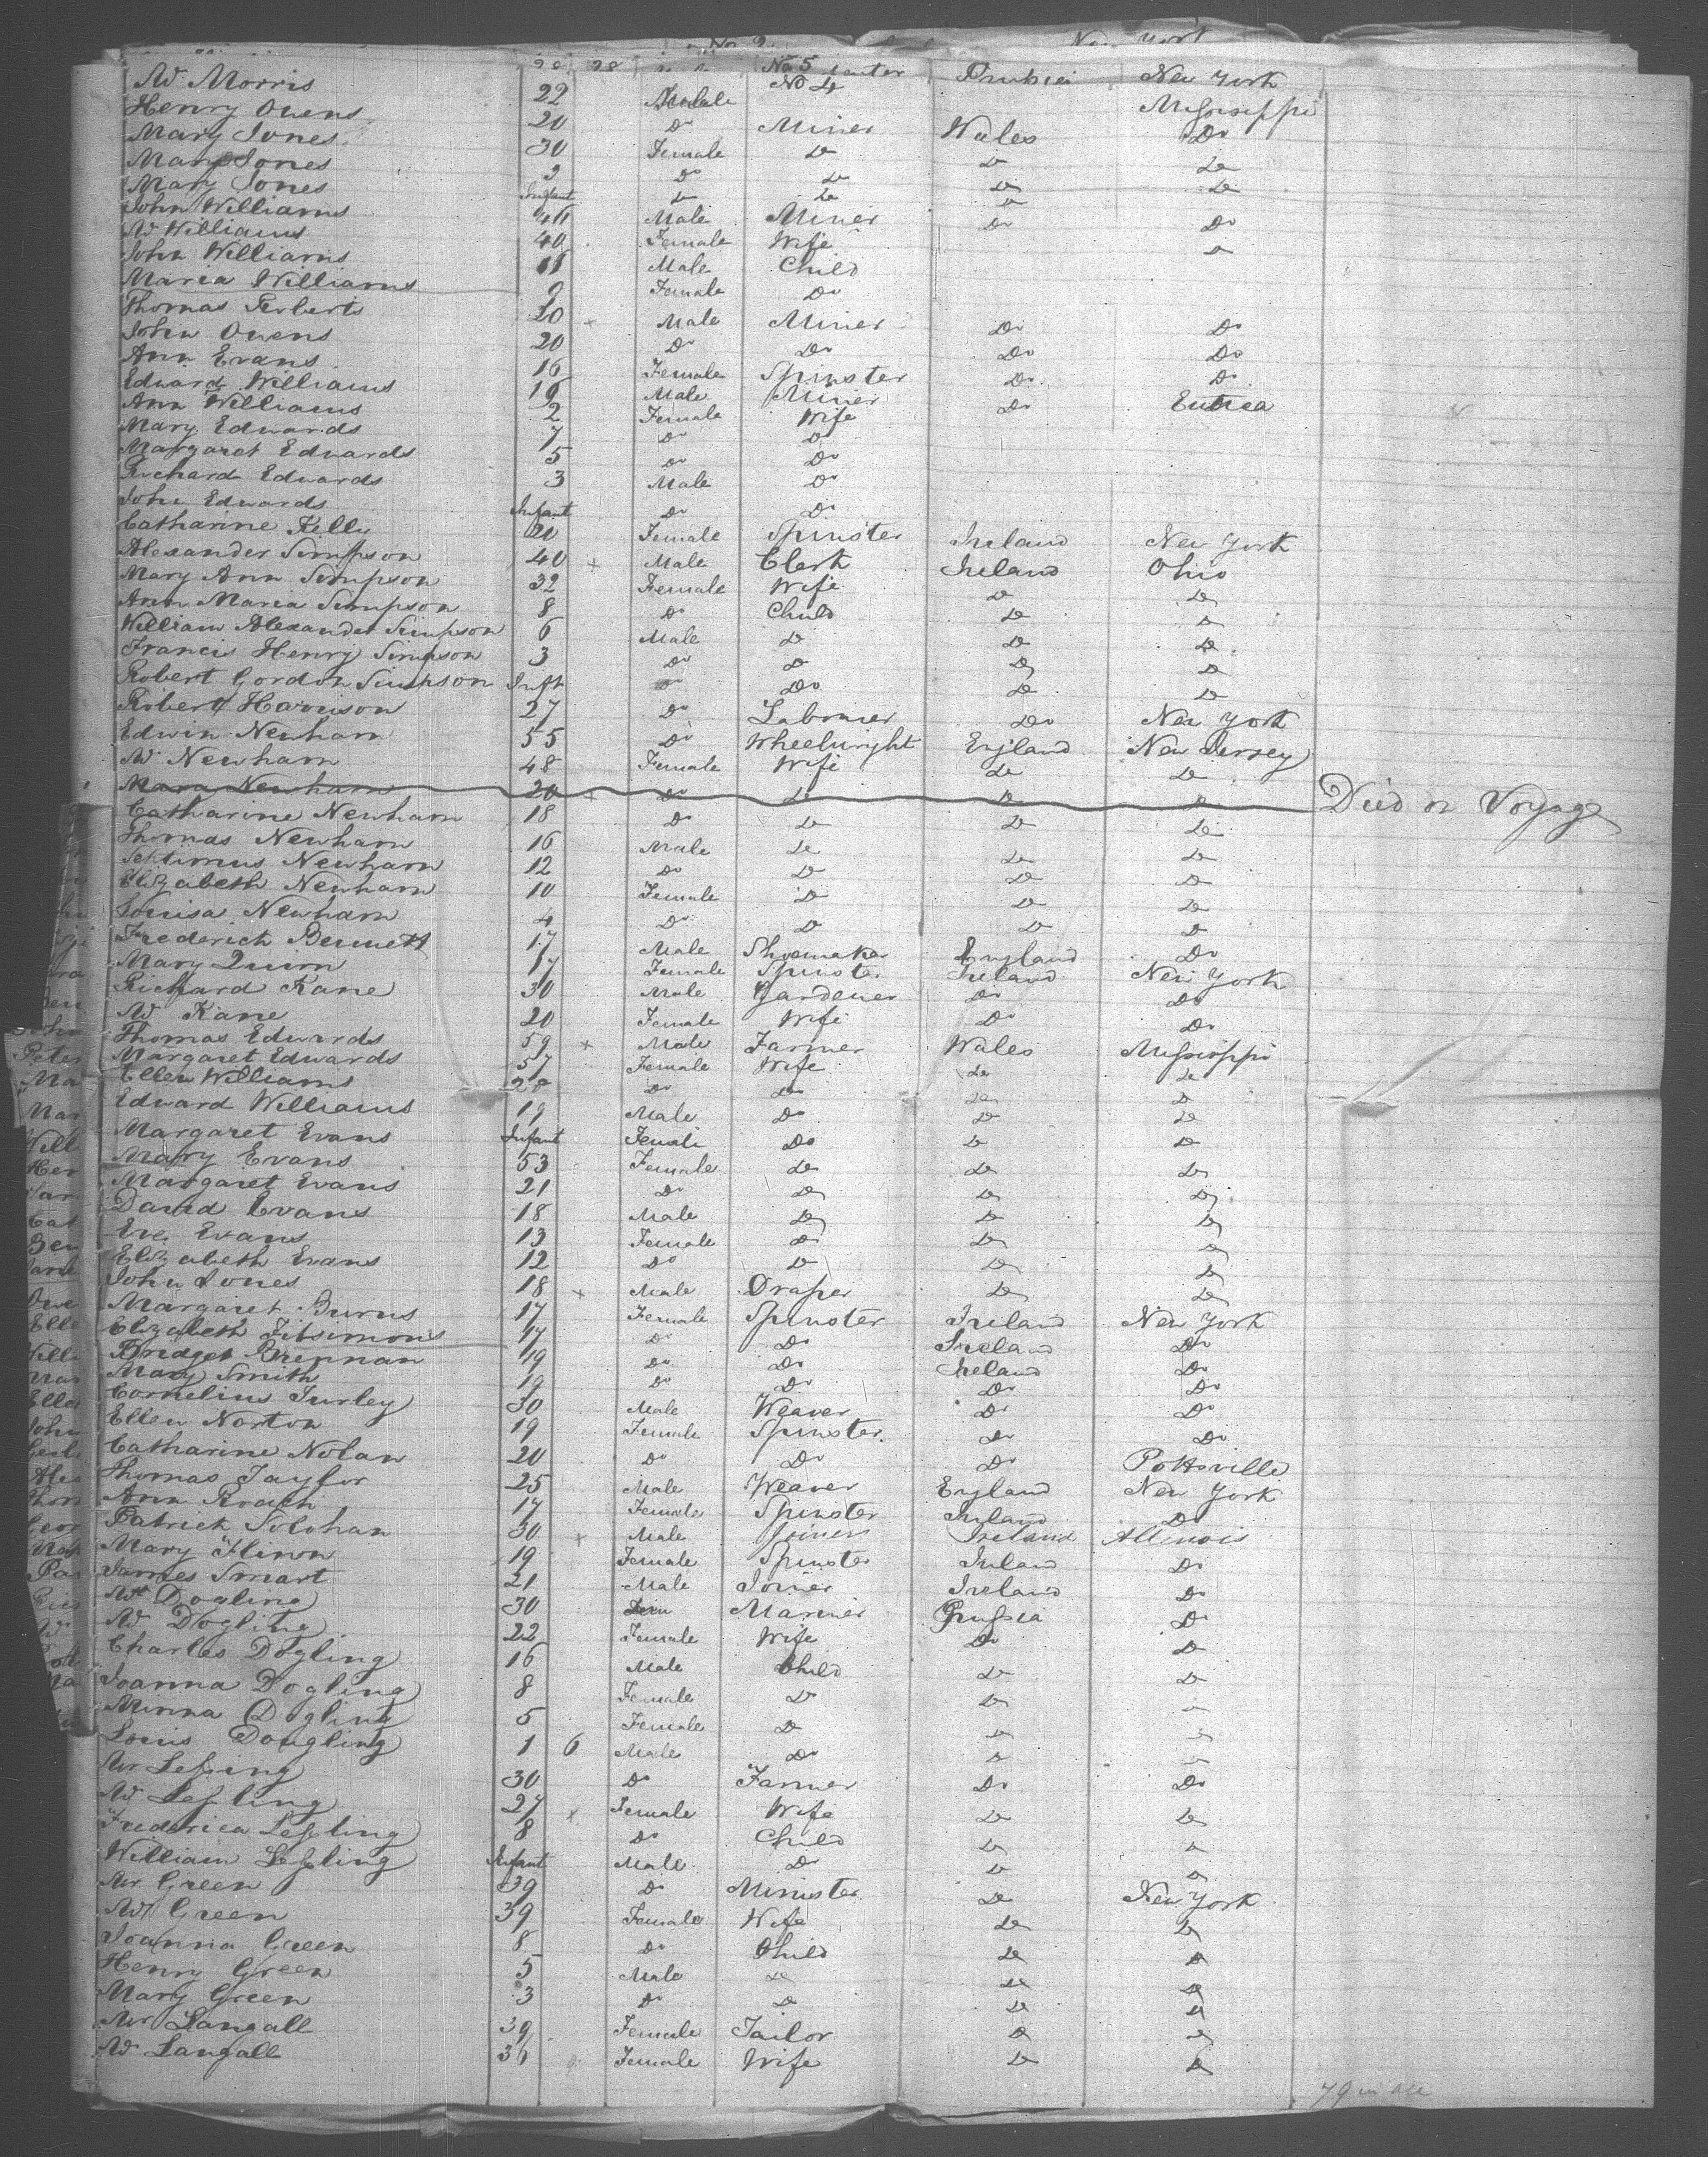 New York
W Morris 22 Male No 4 Prussia New York
Henry Owens 20 Do Miner Wales Mississippi
Mary Jones 30 Female Do Do Do
Mary Jones 3 Do Do Do Do
Mary Jones Infant Do Do Do Do
John Williams 46 Male Miner Do Do
W Williams 40 Female Wife Do
John Williams 11 Male Child
Maria Williams 9 Female Do
Thomas Roberts 20 Male Miner Do Do
John Owens 20 Do Do Do Do
Ann Evans 16 Female Spinster Do Do
Edward Williams 19 Male Miner Do Eutica
Ann Williams 2 Female Wife
Mary Edwards 7 Do Do
Margaret Edwards 5 Do Do
Richard Edwards 3 Male Do
John Edwards Infant Do Do
Catharine Kelly 20 Female Spinster Ireland New York
Alexander Simpson 40 + Male Clerk Ireland Ohio
Mary Ann Simpson 32 Female Wife Do Do
Ann Maria Simpson 8 Do Child Do Do
William Alexander Simpson 6 Male Do Do Do
Francis Henry Simpson 3 Do Do Do Do
Robert Gordon Simpson Inft Do Do Do Do
Robert Harrison 27 Do Labourer Do New York
Edwin Newham 55 Do Wheelwright England New Jersey
W Newham 48 Female Wife Do Do
Mara Newham 20 + Do Do Do Do Died on Voyage
Catharine Newham 18 Do Do Do Do
Thomas Newham 16 Male Do Do Do
Septimus Newham 12 Do Do Do Do
Elizabeth Newham 10 Female Do Do Do
Louisa Newham 4 Do Do Do Do
Frederich Bennett 17 Male Shoemaker England Do
Mary Quinn 17 Female Spinster Ireland New York
Richard Kane 30 Male Gardener Do Do
W Kane 20 Female Wife Do Do
Thomas Edwards 59 + Male Farmer Wales Mississippi
Margaret Edwards 57 Female Wife Do Do
Ellen Williams 28 Do Do Do Do
Edward Williams 19 Male Do Do Do
Margaret Evans Infant Female Do Do Do
Mary Evans 53 Female Do Do Do
Margaret Evans 21 Do Do Do Do
David Evans 18 Male Do Do Do
Eve Evans 13 Female Do Do Do
Elizabeth Evans 12 Do Do Do Do
John Jones 18 + Male Draper Do Do
Margaret Burns 17 Female Spinster Ireland New York
Elizabeth Fitsimons 17 Do Do Ireland Do
Bridget Brennan 19 Do Do Ireland Do
Mary Smith 19 Do Do Do Do
Cornelius Turley 30 Male Weaver Do Do
Ellen Norton 19 Female Spinster Do Do
Catharine Nolan 20 Do Do Do Pottsville
Thomas Taylor 25 Male Weaver England New York
Ann Roach 17 Female Spinster Ireland Do
Patrick Solohan 30 + Male Joiner Ireland Allinois
Mary Flinn 19 Female Spinster Ireland Do
James Smart 21 Male Joiner Ireland Do
Mr Dogling 30 Mariner Prussia Do
W Dogling 22 Female Wife Do Do
Charles Dogling 16 Male Child Do Do
Joanna Dogling 8 Female Do Do
Minna Dogling 5 Female Do
Louis Dougling 1 6 Male Do
Mr Lessing 30 Do Farmer Do Do
W Lessling 27 + Female Wife Do Do
Frederica Lessling 8 Do Child Do Do
William Lessling Infant Male Do Do Do
Mr Green 39 Do Minister Do New York
W Green 39 Female Wife Do Do
Joanna Green 8 Do Child Do Do
Henry Green 5 Male Do Do Do
Mary Green 3 Do Do Do Do
Mr Langall 39 Female Tailor Do Do
W Langall 36 Female Wife Do Do
79 in all